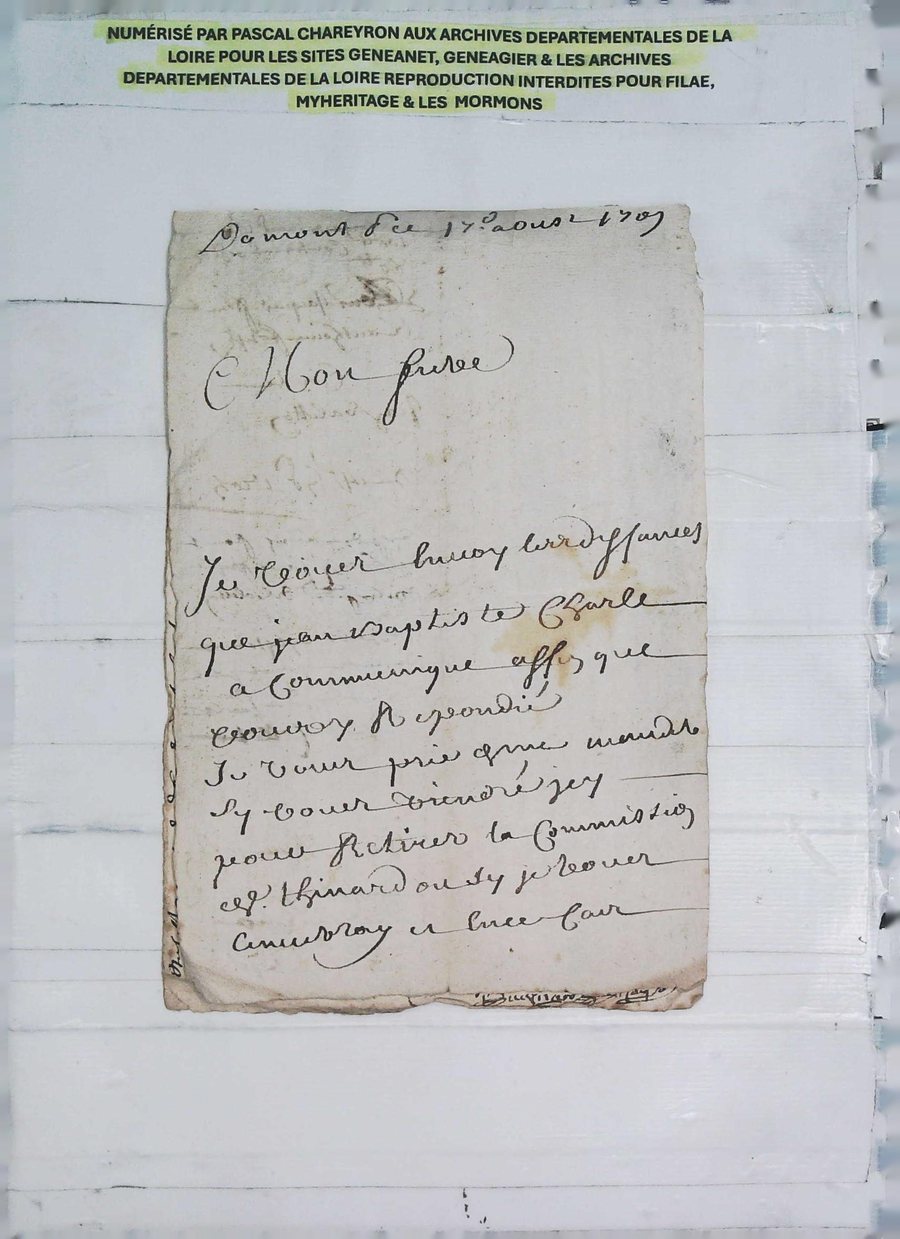 NUMÉRISÉ PAR PASCAL CHAREYRON AUX ARCHIVES DEPARTEMENTALES DE LA
LOIRE POUR LES SITES GENEANET, GENEAGIER & LES ARCHIVES
DEPARTEMENTALES DE LA LOIRE REPRODUCTION INTERDITES POUR FILAE,
MYHERITAGE & LES MORMONS
ce 17e aoust 1705
Mon frere
Je vous envoy les deffances
que jean Baptiste Charle
a Communique affin que
vous y Repondié
Je vous prie de me mander
sy vous viendré jcy
pour Retirer la Commission
de thinard ou sy je vous
en ce cas